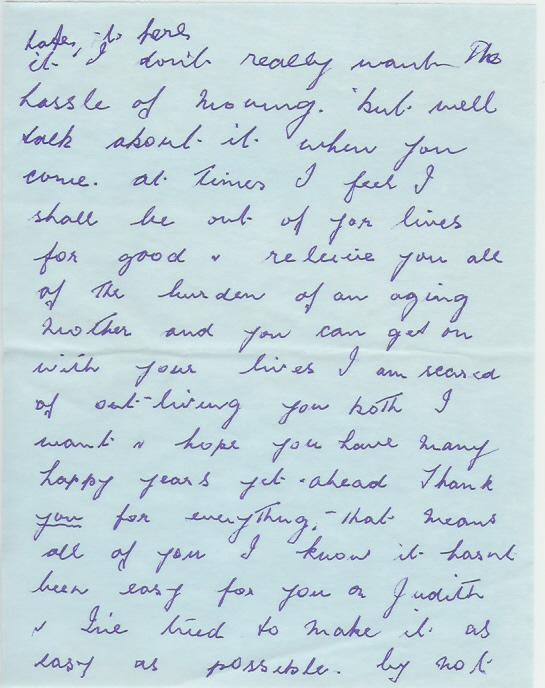 hates, to here
it I don't really want The
hassle of moving. but well
talk about it when you
come. at times I feel I
shall be out of yor lives
for good & releive you all
of the burden of an aging
mother and you can get on
with your lives I am scared
of out-living you both I
want & hope you have many
happy years yet ahead Thank
you for everything, that means
all of you I know it hasnt
been easy for you or Judith
& I've tried to make it as
easy as possible. by not